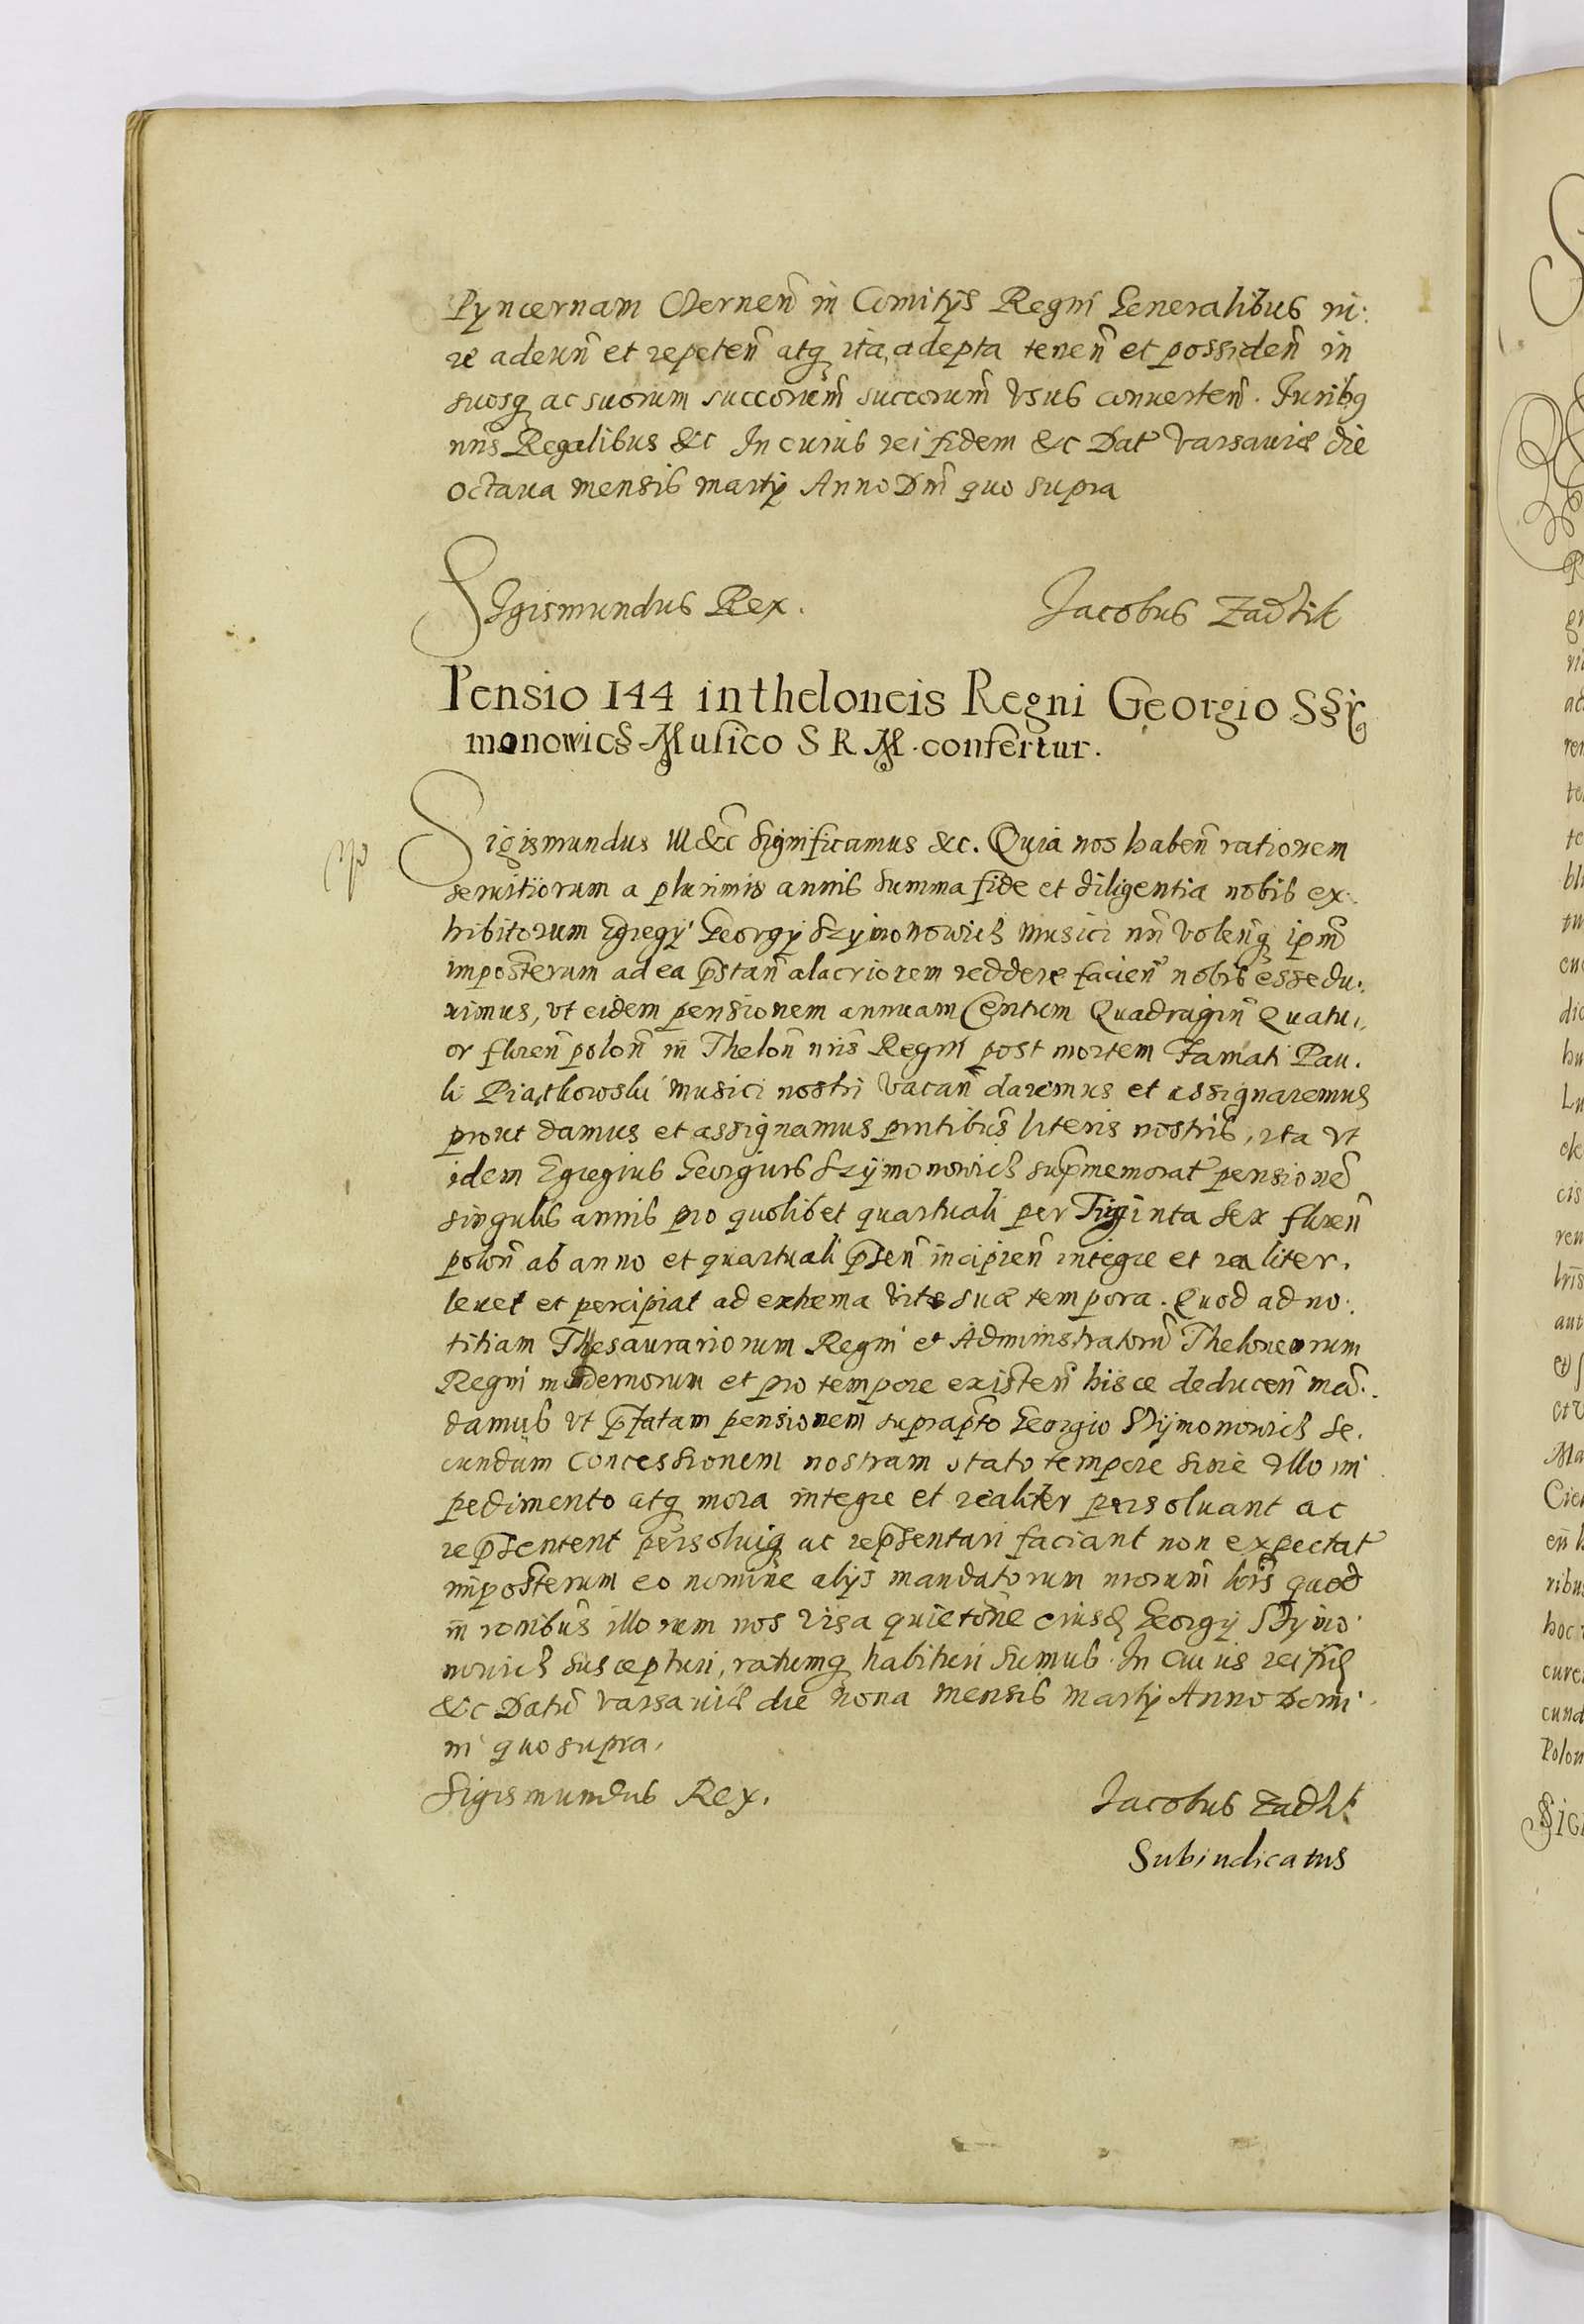 Pyncernam Czernen̄ in Comitijs Regni Generalibus iu:
re adeun̄ et repeten̄ atq ita adepta tenen̄ et possiden̄ in
suosq ac suorum succorum̄ succorum̄ Vsus conuerten̄. Juribq
nris Regalibus &c In cuius rei fidem &c Dat Varsauiæ die
octaua mensis martij Anno Dm̄ quo supra
SIgismundus Rex.
Jacobus Zadzik
Pensio 144 in theloneis Regni Georgio Sszy
monowicz Musico S R M confertur.
Sigismundus III &c Significamus &c. Quia nos haben̄ rationem
seruitiorum a plurimis annis summa fide et diligentia nobis ex:
hibitorum Egregij Georgij Szymonowicz Musici nri̅ volenq̄ ipm̄
imposterum ad ea p̄stan̄ alacriorem reddere facien̄ nobis esse du:
ximus, vt eidem pensionem annuam Centum Quadragin̄ Quatu:
or floren̄ polon̄ in Thelon̄ nris̄ Regni post mortem Famati Pau.
li Piątkowski musici nostri Vacan̄ daremus et assignaremus
prout damus et assignamus pn̄tibus literis nostris, ita vt
idem Egregius Georgius Szymonowicz supmemorat pensionē
singulis annis pro quolibet quartuali per Triginta Sex floren̄
polon̄ ab anno et quartuali p̄sen̄ incipien̄ integre et realiter.
leuet et percipiat ad extrema vitæ suæ tempora. Quod ad no:
titiam Thesaurariorum Regni et Administratorū Theloneorum
Regni modernorum et pro tempore existen̄ hisce deducen̄ mā.
damus vt p̄fatam pensionem suprap̄to Georgio Szymonowicz Se.
cundum Concessionem nostram stato tempore sine vllo im
pedimento atq mora integre et realiter persoluant ac
rep̄sentent persoluiq ac rep̄sentari faciant non expectat
imposterum eo nomine alijs mandatorum nrorum̄ lris̄ quod
in ronibus̄ illorum nos visa quietōne eiusd Georgij Szymo:
nowicz suscepturi, ratumq habituri sumus. In Cuius rei fid
&c Datū Varsauiæ die nona mensis Martij Anno Domi:
ni quo supra.
Sigismundus Rex.
Jacobus Zadzik
Subindicatus